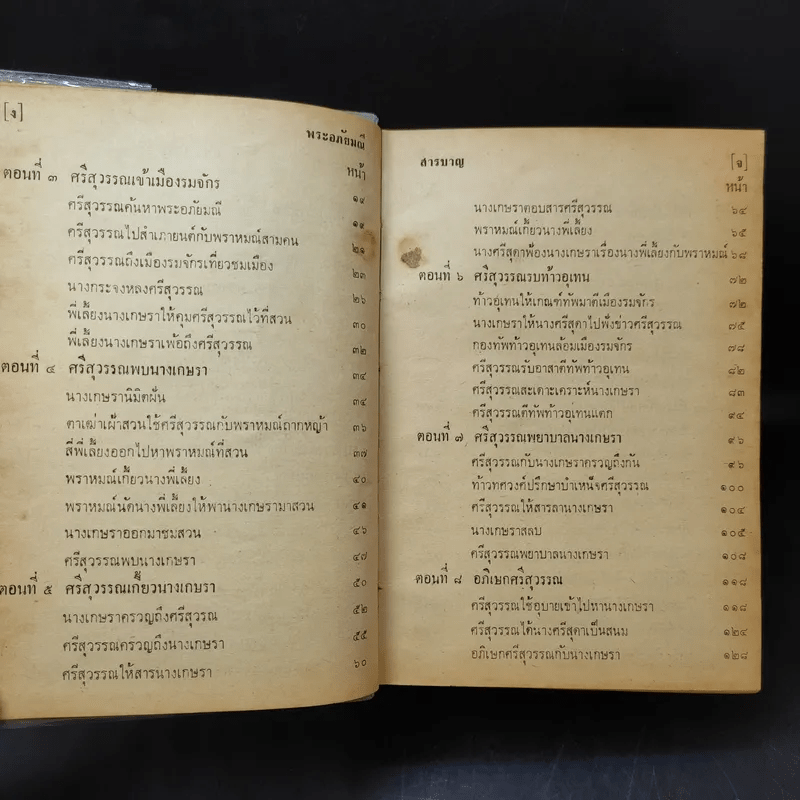 [ง]
พระอภัยมณี
หน้า
ตอนที่ ๓ ศรีสุวรรณเข้าเมืองรมจักร ๑๙
ศรีสุวรรณค้นหาพระอภัยมณี ๑๙
ศรีสุวรรณไปสำเภายนต์กับพราหมณ์สามคน ๒๑
ศรีสุวรรณถึงเมืองรมจักรเที่ยวชมเมือง ๒๓
นางกระจงหลงศรีสุวรรณ ๒๖
พี่เลี้ยงนางเกษราให้คุมศรีสุวรรณไว้ที่สวน ๓๐
พี่เลี้ยงนางเกษราเพ้อถึงศรีสุวรรณ ๓๒
ตอนที่ ๔ ศรีสุวรรณพบนางเกษรา ๓๔
นางเกษรานิมิตฝัน ๓๔
ตาเฒ่าเฝ้าสวนใช้ศรีสุวรรณกับพราหมณ์ถากหญ้า ๓๖
สี่พี่เลี้ยงออกไปหาพราหมณ์ที่สวน ๓๗
พราหมณ์เกี้ยวนางพี่เลี้ยง ๔๐
พราหมณ์นัดนางพี่เลี้ยงให้พานางเกษรามาสวน ๔๑
นางเกษราออกมาชมสวน ๔๖
ศรีสุวรรณพบนางเกษรา ๔๗
ตอนที่ ๕ ศรีสุวรรณเกี้ยวนางเกษรา ๕๐
นางเกษราครวญถึงศรีสุวรรณ ๕๒
ศรีสุวรรณครวญถึงนางเกษรา ๕๕
ศรีสุวรรณให้สารนางเกษรา ๖๐
สารบาญ [จ]
หน้า
นางเกษราตอบสารศรีสุวรรณ ๖๔
พราหมณ์เกี้ยวนางพี่เลี้ยง ๖๕
นางศรีสุดาฟ้องนางเกษราเรื่องนางพี่เลี้ยงกับพราหมณ์ ๖๘
ตอนที่ ๖ ศรีสุวรรณรบท้าวอุเทน ๗๒
ท้าวอุเทนให้เกณฑ์ทัพมาตีเมืองรมจักร ๗๒
นางเกษราให้นางศรีสุดาไปฟังข่าวศรีสุวรรณ ๗๕
กองทัพท้าวอุเทนล้อมเมืองรมจักร ๗๘
ศรีสุวรรณรับอาสาตีทัพท้าวอุเทน ๘๒
ศรีสุวรรณสะเดาะเคราะห์นางเกษรา ๘๓
ศรีสุวรรณตีทัพท้าวอุเทนแตก ๙๔
ตอนที่ ๗ ศรีสุวรรณพยาบาลนางเกษรา ๙๖
ศรีสุวรรณกับนางเกษราครวญถึงกัน ๙๖
ท้าวทศวงค์ปรึกษาบำเหน็จศรีสุวรรณ ๑๐๐
ศรีสุวรรณให้สารลานางเกษรา ๑๐๔
นางเกษราสลบ ๑๐๕
ศรีสุวรรณพยาบาลนางเกษรา ๑๐๘
ตอนที่ ๘ อภิเษกศรีสุวรรณ ๑๑๘
ศรีสุวรรณใช้อุบายเข้าไปหานางเกษรา ๑๑๘
ศรีสุวรรณได้นางศรีสุดาเป็นสนม ๑๒๔
อภิเษกศรีสุวรรณกับนางเกษรา ๑๒๘